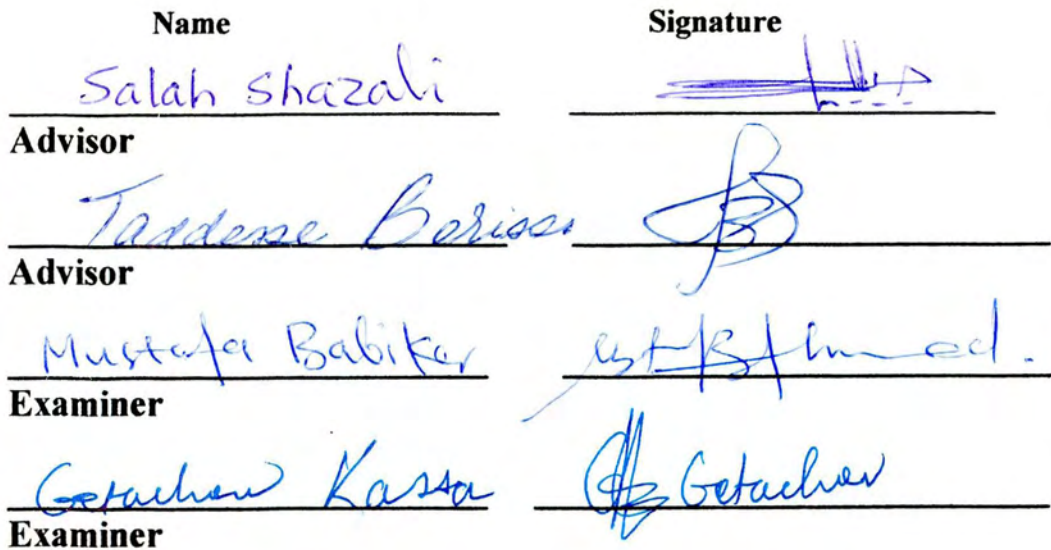 Name Signature
Salah Shazali
Advisor
Taddesse Berisso
Advisor
Mustafa Babiker
Examiner
Getachew Kassa Getachew
Examiner